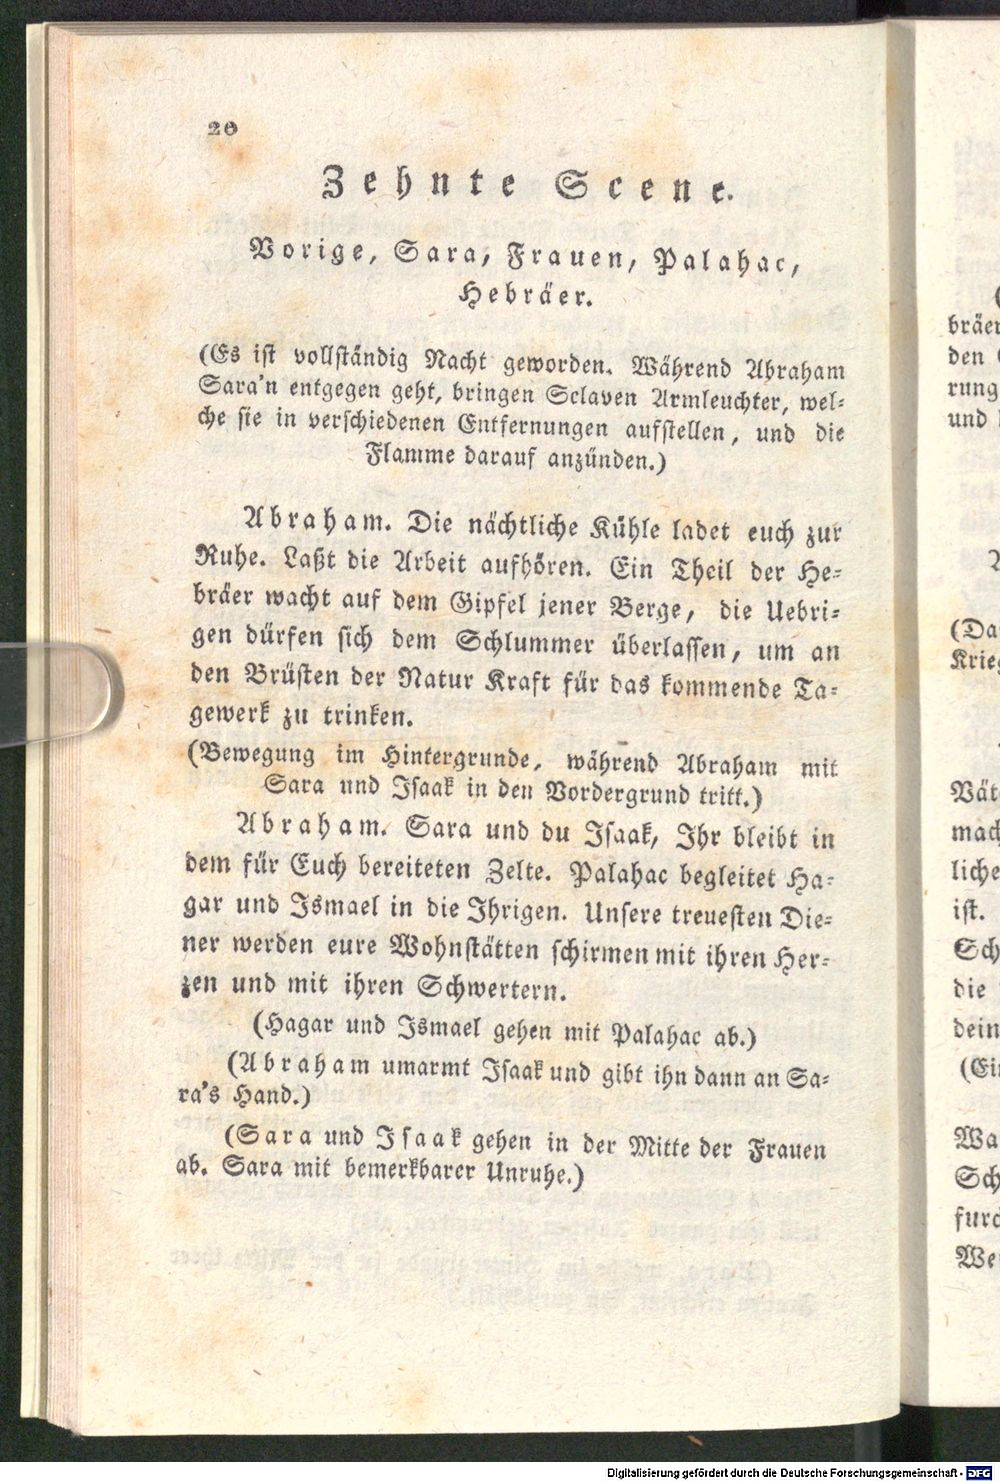 20
Zehnte Scene.
Vorige, Sara, Frauen, Palahac,
Hebräer.
(Es ist vollständig Nacht geworden. Während Abraham
Sara'n entgegen geht, bringen Sclaven Armleuchter, wel=
che sie in verschiedenen Entfernungen aufstellen, und die
Flamme darauf anzünden.)
Abraham. Die nächtliche Kühle ladet euch zur
Ruhe. Laßt die Arbeit aufhören. Ein Theil der He=
bräer wacht auf dem Gipfel jener Berge, die Uebri=
gen dürfen sich dem Schlummer überlassen, um an
den Brüsten der Natur Kraft für das kommende Ta=
gewerk zu trinken.
(Bewegung im Hintergrunde, während Abraham mit
Sara und Isaak in den Vordergrund tritt.)
Abraham. Sara und du Isaak, Ihr bleibt in
dem für Euch bereiteten Zelte. Palahac begleitet Ha=
gar und Ismael in die Ihrigen. Unsere treuesten Die=
ner werden eure Wohnstätten schirmen mit ihren Her=
zen und mit ihren Schwertern.
(Hagar und Ismael gehen mit Palahac ab.)
(Abraham umarmt Isaak und gibt ihn dann an Sa=
ra's Hand.)
(Sara und Isaak gehen in der Mitte der Frauen
ab. Sara mit bemerkbarer Unruhe.)
bräer
den
rung
und
(Da
Krieg
Vät
mach
liche
ist.
Sch
die
dein
(Ein
Wa
Sch
furc
We
Digitalisierung gefördert durch die Deutsche Forschungsgemeinschaft - DFG